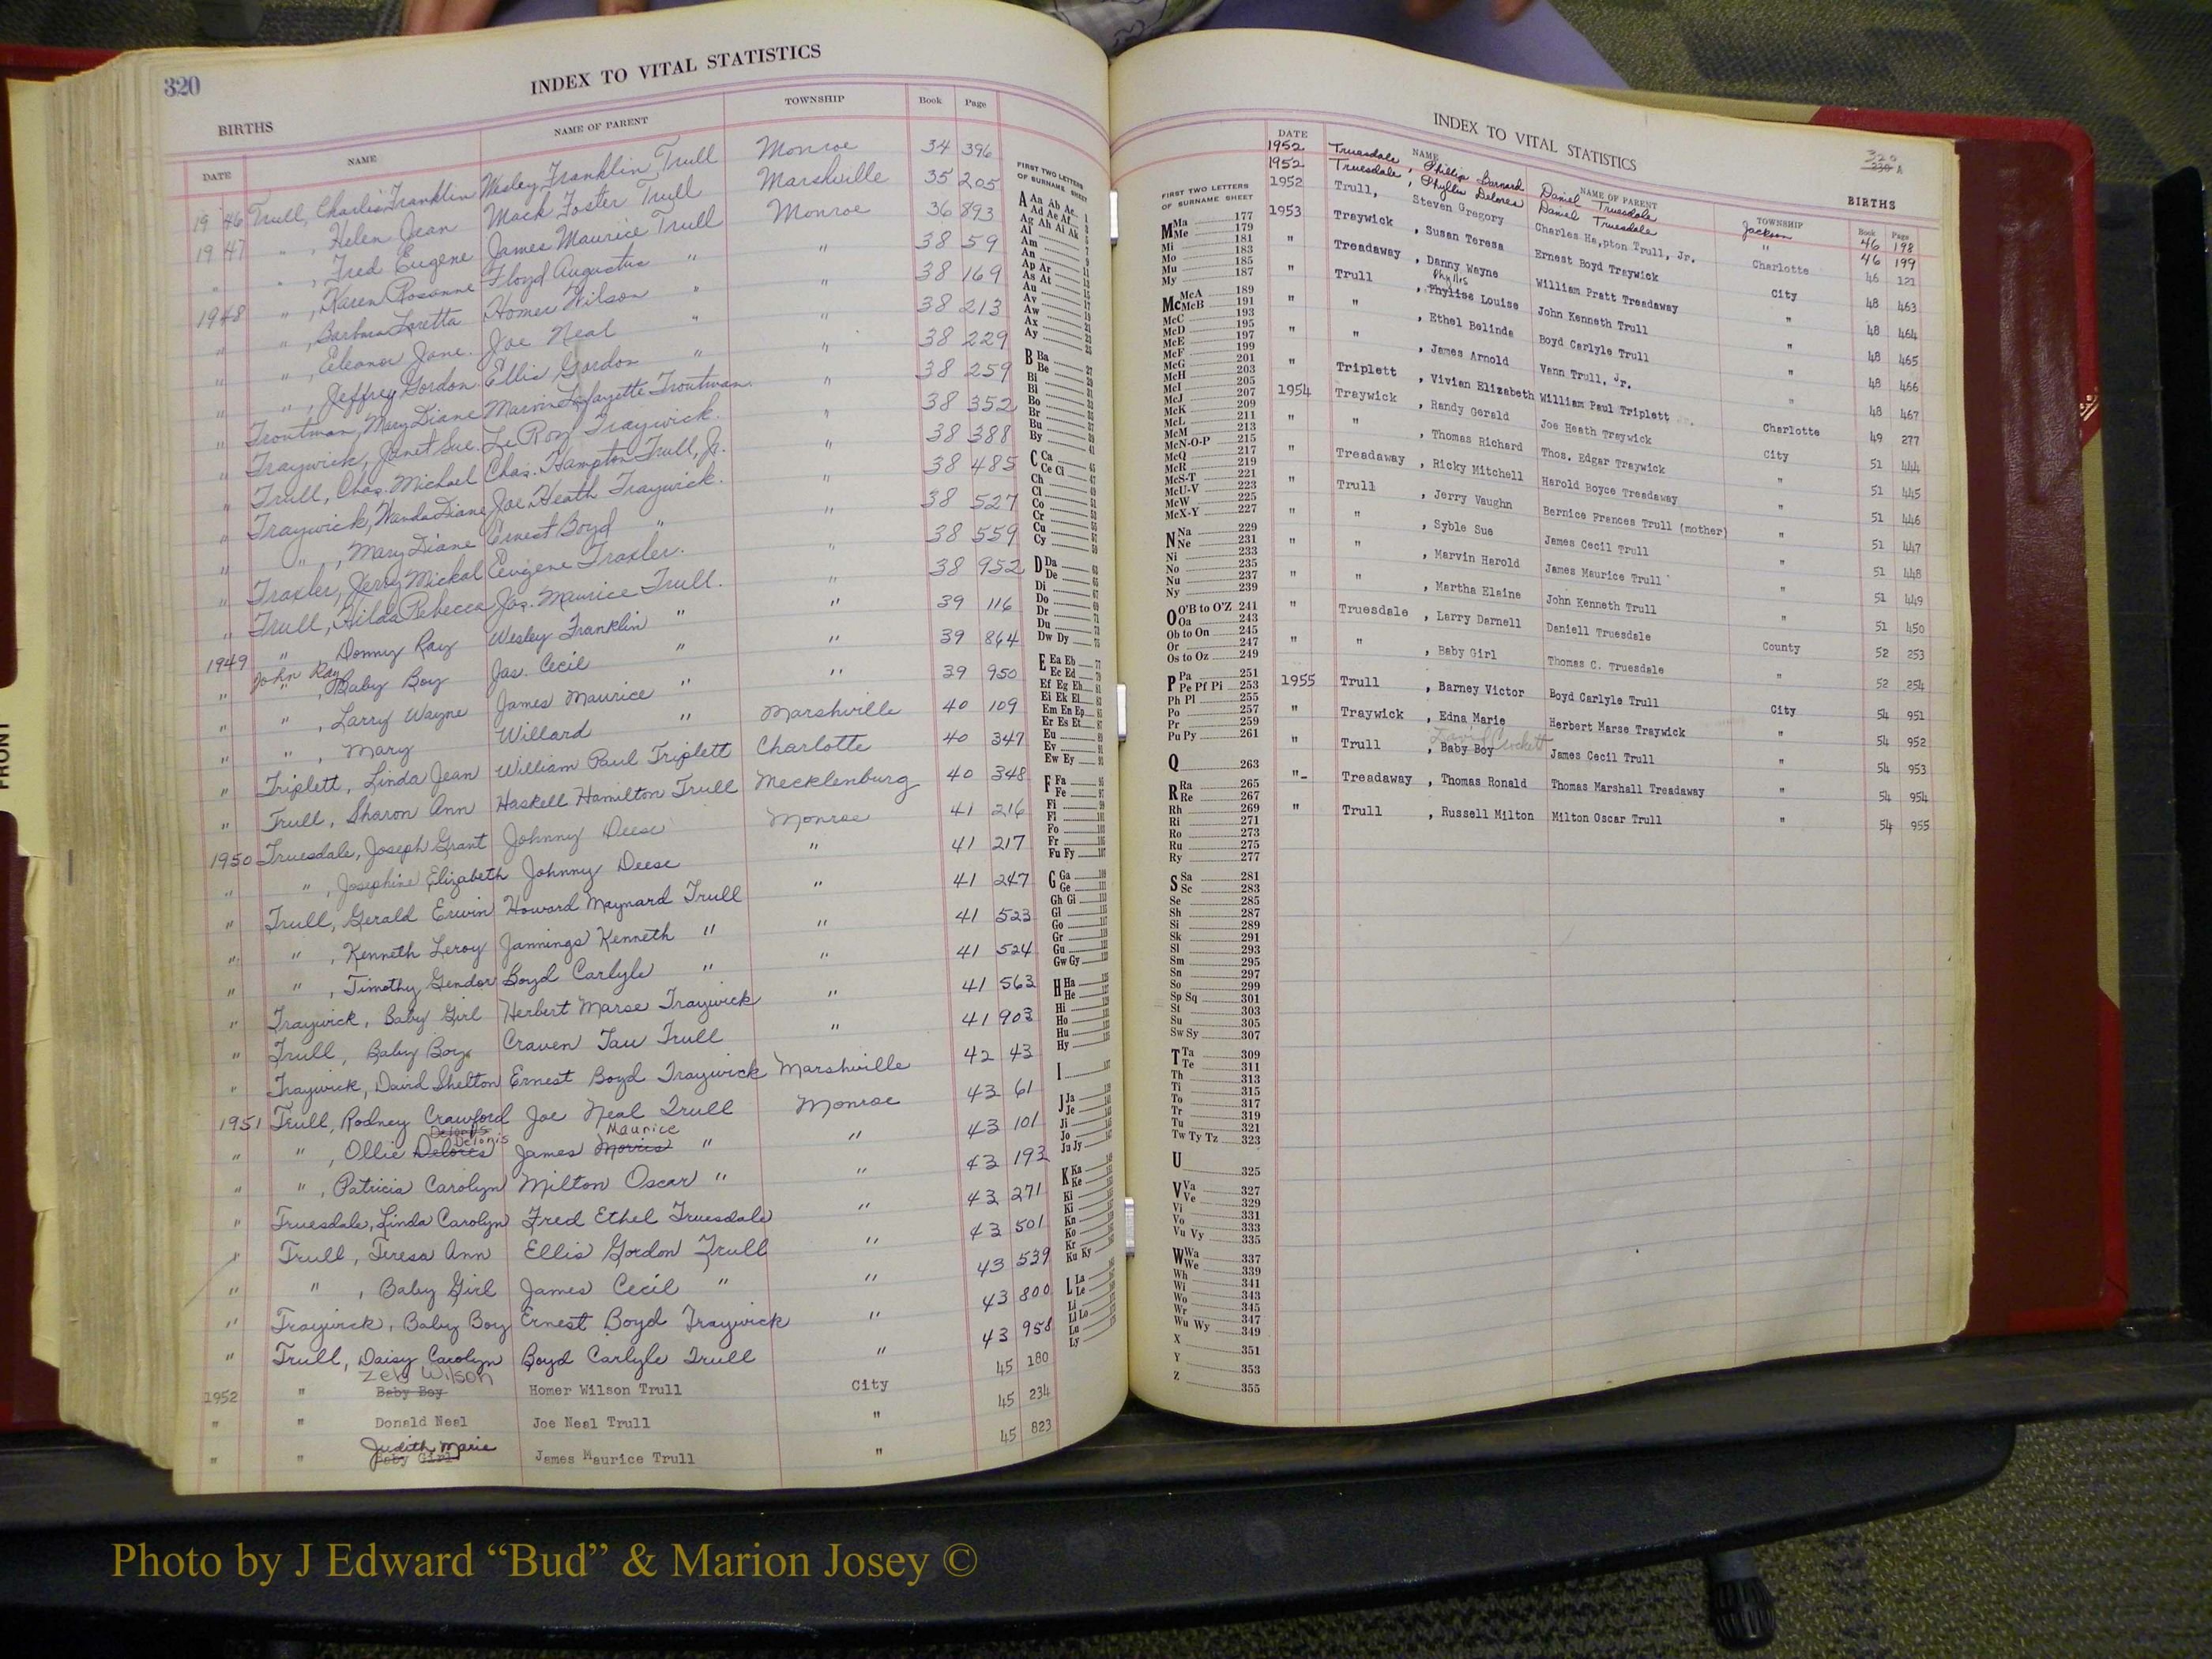 320
INDEX TO VITAL STATISTICS
BIRTHS
DATE NAME NAME OF PARENT TOWNSHIP Book Page
1946 Trull, Charlie Franklin Wesley Franklin Trull Monroe 34 396
1947 " , Helen Jean Mack Foster Trull Marshville 35 205
" " , Fred Eugene James Maurice Trull Monroe 36 893
1948 " , Karen Rosanne Floyd Augustus " " 38 59
" " , Barbara Loretta Homer Wilson " " 38 169
" " , Eleanor Jane Joe Neal " " 38 213
" " , Jeffrey Gordon Ellis Gordon " " 38 229
" Troutman, Mary Diane Marvin Lafayette Troutman " 38 259
" Traywick, Janet Sue LeRoy Traywick " 38 352
" Trull, Chas. Michael Chas. Hampton Trull, Jr. " 38 388
" Traywick, Wanda Diane Joe Heath Traywick " 38 485
" " , Mary Diane Ernest Boyd " " 38 527
" Traxler, Jerry Mickal Eugene Traxler " 38 559
" Trull, Hilda Rebecca Jas. Maurice Trull " 38 952
1949 " Donny Ray Wesley Franklin " " 39 116
John Ray
" " , Baby Boy Jas. Cecil " " 39 864
" " , Larry Wayne James Maurice " " 39 950
" " , Mary Willard " Marshville 40 109
" Triplett, Linda Jean William Paul Triplett Charlotte 40 347
" Trull, Sharon Ann Haskell Hamilton Trull Mecklenburg 40 348
1950 Truesdale, Joseph Grant Johnny Deese Monroe 41 216
" " , Josephine Elizabeth Johnny Deese " 41 217
" Trull, Gerald Erwin Howard Maynard Trull " 41 247
" " , Kenneth Leroy Jannings Kenneth " " 41 523
" " , Timothy Gendor Boyd Carlyle " " 41 524
" Traywick, Baby Girl Herbert Marse Traywick " 41 563
" Trull, Baby Boy Craven Tau Trull " 41 903
" Traywick, David Shelton Ernest Boyd Traywick Marshville 42 43
1951 Trull, Rodney Crawford Joe Neal Trull Monroe 43 61
Deloris Maurice
" " , Ollie Delores James Morris " " 43 101
" " , Patricia Carolyn Milton Oscar " " 43 193
" Truesdale, Linda Carolyn Fred Ethel Truesdale " 43 271
" Trull, Teresa Ann Ellis Gordon Trull " 43 501
" " , Baby Girl James Cecil " " 43 539
" Traywick, Baby Boy Ernest Boyd Traywick " 43 800
" Trull, Daisy Carolyn Boyd Carlyle Trull " 43 958
Zeb Wilson
1952 " Baby Boy Homer Wilson Trull City 45 180
" " Donald Neal Joe Neal Trull " 45 234
Judith Marie
" " Baby Girl James Maurice Trull " 45 823
FIRST TWO LETTERS
OF SURNAME SHEET
A Aa Ab Ac
Ad Ae Af
Ag Ah Ai Ak
Al
Am
An
Ap Ar
As At
Au
Av
Aw
Ax
Ay
B Ba
Be
Bi
Bl
Bo
Br
Bu
By
C Ca
Ce Ci
Ch
Cl
Co
Cr
Cu
Cy
D Da
De
Di
Do
Dr
Du
Dw Dy
E Ea Eb
Ec Ed
Ef Eg Eh
Ei Ek El
Em En Ep
Er Es Et
Eu
Ev
Ew Ey
F Fa
Fe
Fi
Fl
Fo
Fr
Fu Fy
G Ga
Ge
Gh Gi
Gl
Go
Gr
Gu
Gw Gy
H Ha
He
Hi
Ho
Hu
Hy
I
J Ja
Je
Ji
Jo
Ju Jy
K Ka
Ke
Ki
Kn
Ko
Kr
Ku Ky
L La
Le
Li
Ll Lo
Lu
Ly
INDEX TO VITAL STATISTICS
320
A
BIRTHS
DATE NAME NAME OF PARENT TOWNSHIP Book Page
1952 Truesdale, Phillip Barnard Daniel Truesdale Jackson 46 198
1952 Truesdale, Phyllis Delores Daniel Truesdale " 46 199
1952 Trull, Steven Gregory Charles Ha,pton Trull, Jr. Charlotte 46 121
1953 Traywick , Susan Teresa Ernest Boyd Traywick City 48 463
" Treadaway , Danny Wayne William Pratt Treadaway " 48 464
Phyllis
" Trull , Phylise Louise John Kenneth Trull " 48 465
" " , Ethel Belinda Boyd Carlyle Trull " 48 466
" " , James Arnold Vann Trull, Jr. " 48 467
" Triplett , Vivian Elizabeth William Paul Triplett Charlotte 49 277
1954 Traywick , Randy Gerald Joe Heath Traywick City 51 444
" " , Thomas Richard Thos. Edgar Traywick " 51 445
" Treadaway , Ricky Mitchell Harold Boyce Treadaway " 51 446
" Trull , Jerry Vaughn Bernice Frances Trull (mother) " 51 447
" " , Syble Sue James Cecil Trull " 51 448
" " , Marvin Harold James Maurice Trull " 51 449
" " , Martha Elaine John Kenneth Trull " 51 450
" Truesdale , Larry Darnell Daniell Truesdale County 52 253
" " , Baby Girl Thomas C. Truesdale " 52 254
1955 Trull , Barney Victor Boyd Carlyle Trull City 54 951
" Traywick , Edna Marie Herbert Marse Traywick " 54 952
David Crockett
" Trull , Baby Boy James Cecil Trull " 54 953
"- Treadaway , Thomas Ronald Thomas Marshall Treadaway " 54 954
" Trull , Russell Milton Milton Oscar Trull " 54 955
FIRST TWO LETTERS
OF SURNAME SHEET
M Ma 177
Me 179
Mi 181
Mo 183
Mu 185
My 187
Mc McA 189
McB 191
McC 193
McD 195
McE 197
McF 199
McG 201
McH 203
McI 205
McJ 207
McK 209
McL 211
McM 213
McN-O-P 215
McQ 217
McR 219
McS-T 221
McU-V 223
McW 225
McX-Y 227
N Na 229
Ne 231
Ni 233
No 235
Nu 237
Ny 239
O O'B to O'Z 241
Oa 243
Ob to On 245
Or 247
Os to Oz 249
P Pa 251
Pe Pf Pi 253
Ph Pl 255
Po 257
Pr 259
Pu Py 261
Q 263
R Ra 265
Re 267
Rh 269
Ri 271
Ro 273
Ru 275
Ry 277
S Sa 281
Sc 283
Se 285
Sh 287
Si 289
Sk 291
Sl 293
Sm 295
Sn 297
So 299
Sp Sq 301
St 303
Su 305
Sw Sy 307
T Ta 309
Te 311
Th 313
Ti 315
To 317
Tr 319
Tu 321
Tw Ty Tz 323
U 325
V Va 327
Ve 329
Vi 331
Vo 333
Vu Vy 335
W Wa 337
We 339
Wh 341
Wi 343
Wo 345
Wr 347
Wu Wy 349
X 351
Y 353
Z 355
FRONT
Photo by J Edward “Bud” & Marion Josey ©